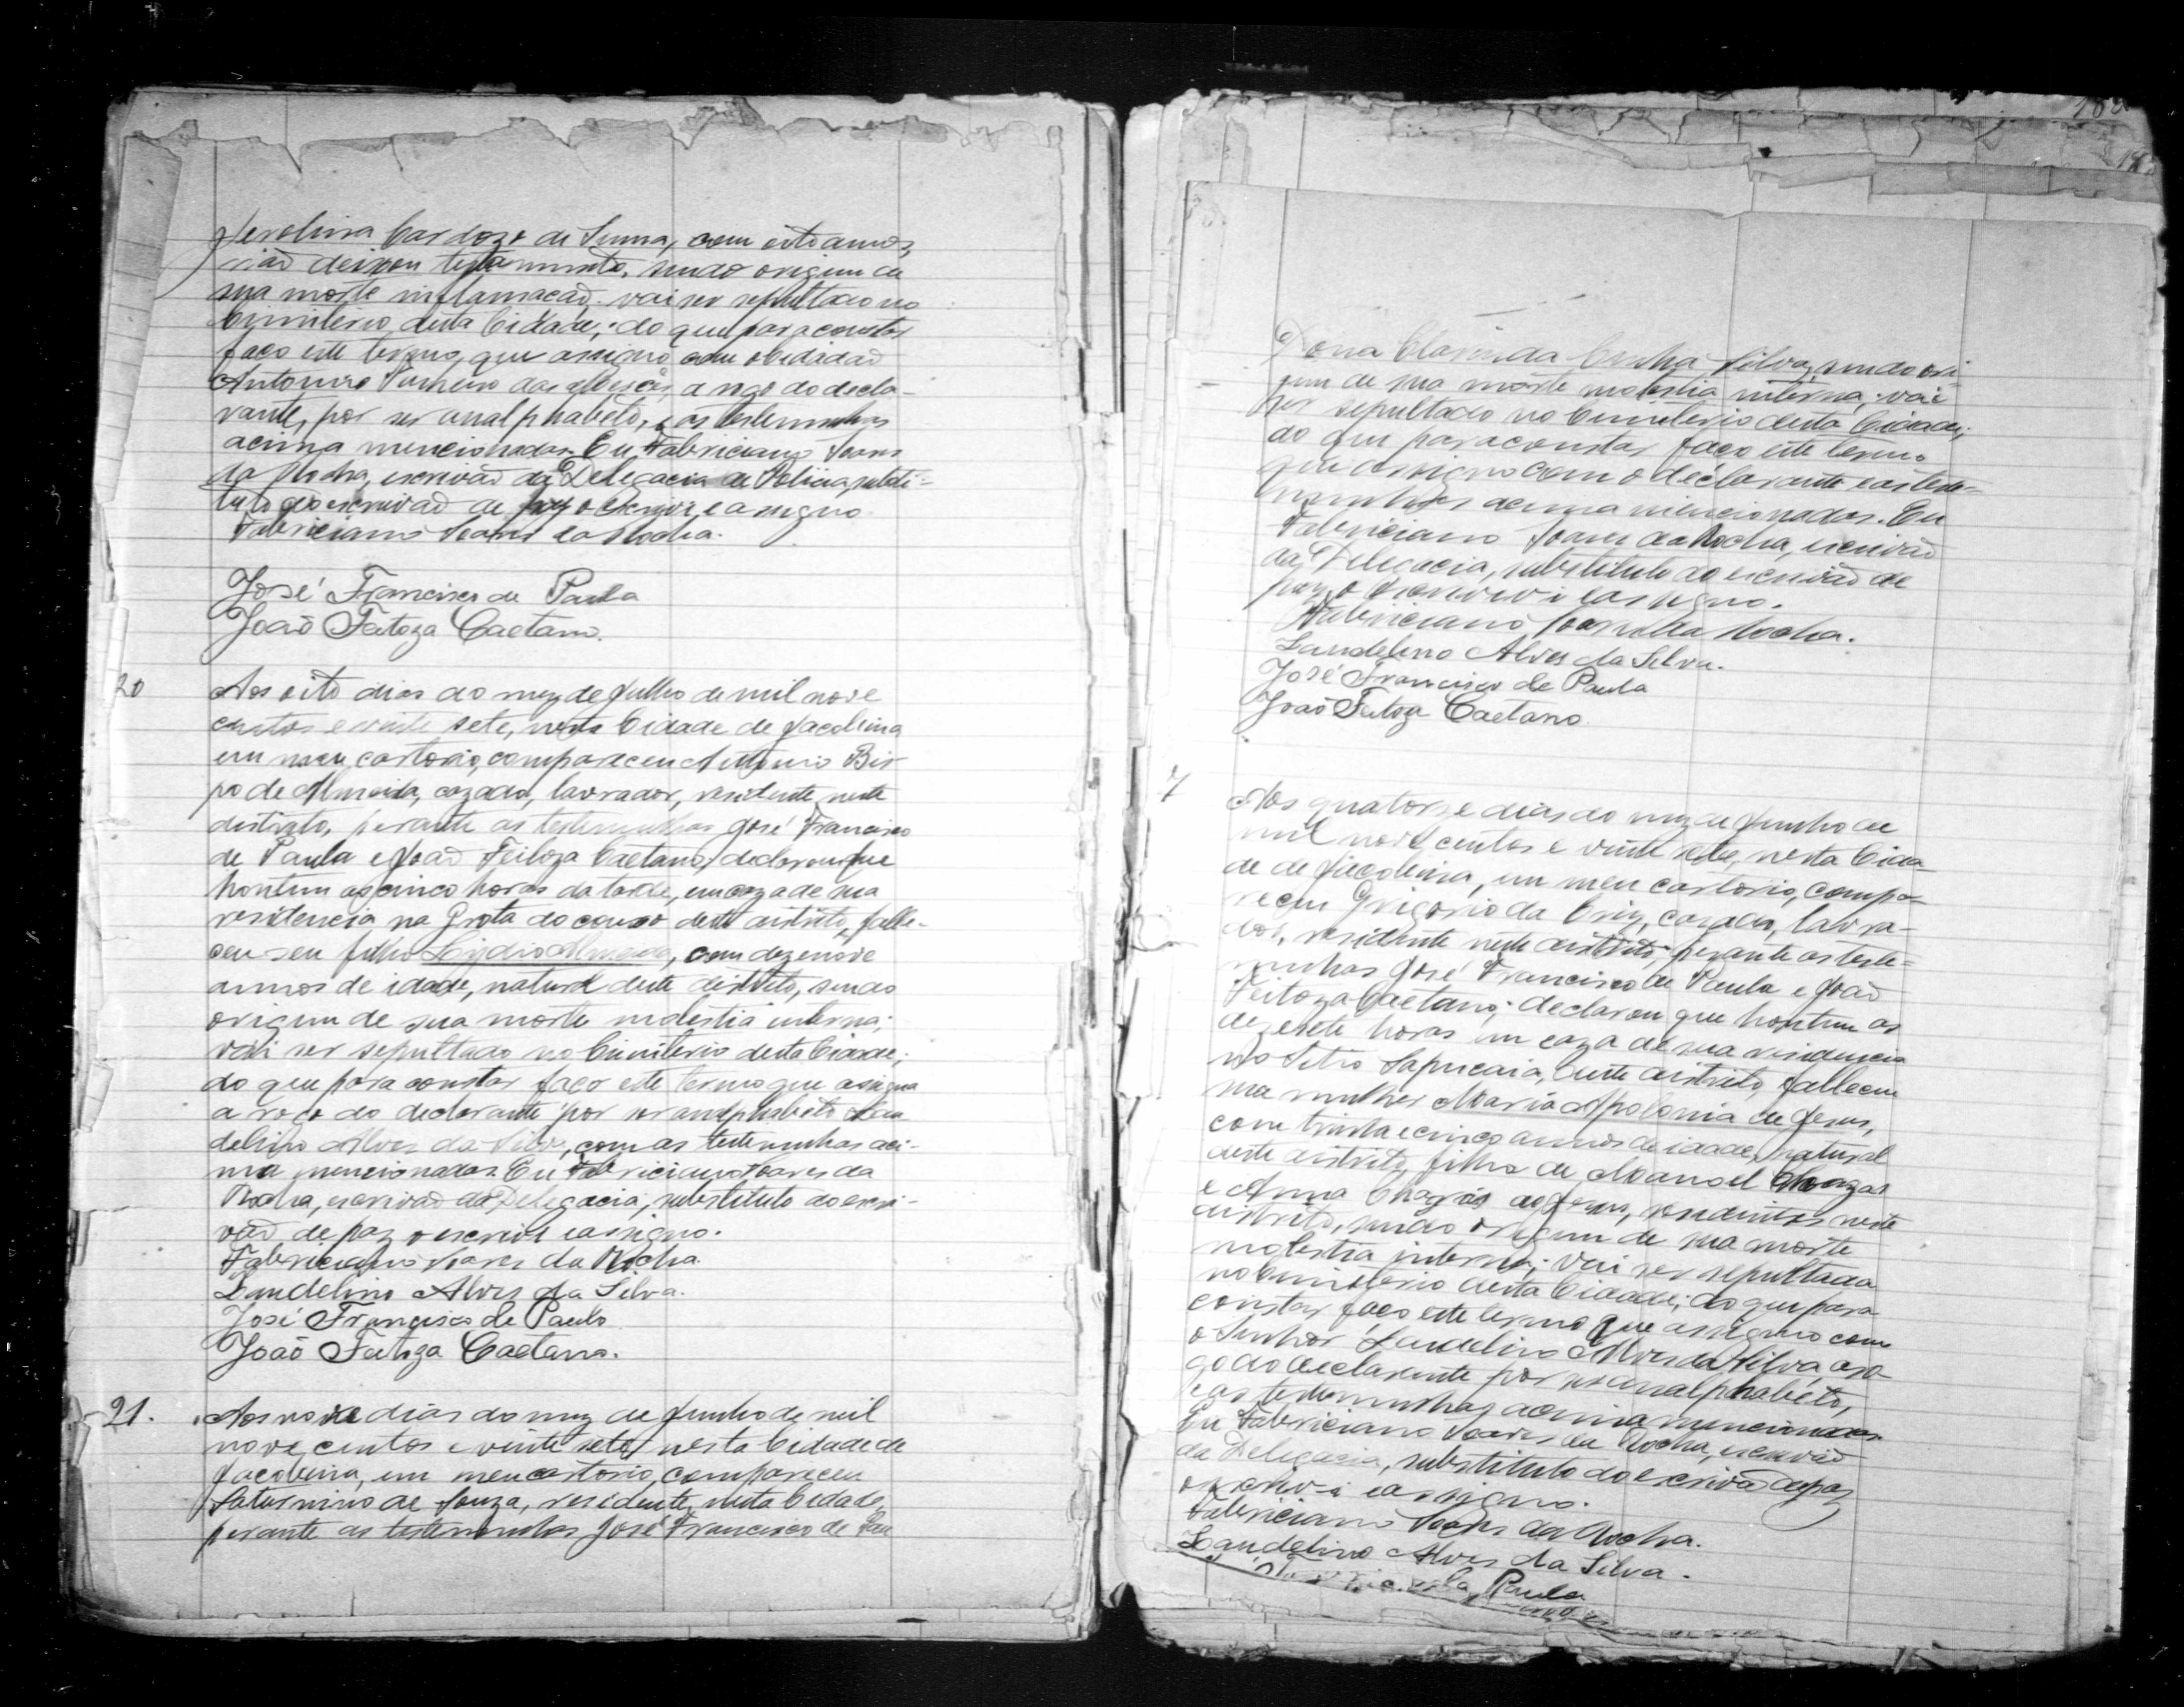 Jevelina Cardozo de Senna, com oito annos,
não deixou testamento, sendo origem de
sua morte inflamação. vai ser sepultado no
Cimiterio desta Cidade; do que para constar
faço este termo, que assigno com o cidadão
Antonio das a rogo do decla-
rante, por ser analphabeto, e as testemunhas
acima mencionadas. Eu, Fabriciano Soares
da Rocha, escrivão da Delegacia de Policia, substi-
tuto do escrivão de paz o escrevi e assigno.
Fabriciano Soares da Rocha.
José Francisco de Paula
João Feitoza Caetano.
20
Aos oito dias do mez de Julho de mil nove
centos e vinte sete, nesta Cidade de Jacobina
em meu cartorio, compareceu Antonio Bis
po de Almeida, cazado, lavrador, residente neste
districto, perante as testemunhas José Francisco
de Paula e João Feitoza Caetano, declarou que
hontem as cinco horas da tarde, em caza de sua
residencia na Grota do couro deste distrito, falle-
ceu seu filho Lydio Almeida, com dezenove
annos de idade, natural deste distrito, sendo
origem de sua morte molestia interna;
vai ser sepultado no Cimiterio desta Cidade;
do que para constar faço este termo que assigna
a rogo do declarante por ser analphabeto Lau
delino Alves da Silva, com as testemunhas aci-
ma mencionadas. Eu Fabriciano Soares da
Rocha, escrivão da Delegacia, substituto do escri-
vão de paz o escrevi e assigno.
Fabriciano Soares da Rocha.
Laudelino Alves da Silva.
José Francisco de Paula
João Feitoza Caetano.
21.
Aos nove dias do mez de Junho de mil
nove centos e vinte sete, nesta Cidade de
Jacobina, em meu cartorio, compareceu
Saturnino de Souza, residente nesta Cidade,
perante as testemunhas José Francisco de Pau
Dona Clarinda Cunha Silva, sendo ori
gem de sua morte molestia interna; vai
ser sepultado no Cimiterio desta Cidade;
do que para constar faço este termo
que assigno com o declarante e as teste-
munhas acima mencionadas. Eu
Fabriciano Soares da Rocha, escrivão
da Delegacia, substituto do escrivão de
paz o escrevi e assigno.
Fabriciano Soares da Rocha.
Laudelino Alves da Silva.
José Francisco de Paula
João Feitoza Caetano
Aos quatorze dias do mez de Junho de
mil nove centos e vinte sete, nesta Cida
de de Jacobina, em meu cartorio, compa-
receu Grigorio da Cruz, cazado, lavra-
dor, residente neste distrito; perante as teste-
munhas José Francisco de Paula e João
Feitoza Caetano; declarou que hontem as
dezesete horas em caza de sua residencia
no Sitio Sapucaia, deste distrito, falleceu
sua mulher Maria Apolonia de Jesus,
com trinta e cinco annos de idade, natural
deste distrito, filha de Manoel Chagas
e Anna Chagas de Jesus, residentes neste
distrito, sendo origem de sua morte
molestia interna; vai ser sepultada
no Cimiterio desta Cidade; do que para
constar faço este termo que assigno com
o Senhor Laudelino Alves da Silva a ro-
go do declarante por ser analphabeto,
e as testemunhas acima mencionadas.
Eu Fabriciano Soares da Rocha, escrivão
da Delegacia, substituto do escrivão de paz
o escrevi e assigno.
Fabriciano Soares da Rocha.
Laudelino Alves da Silva.
Paula